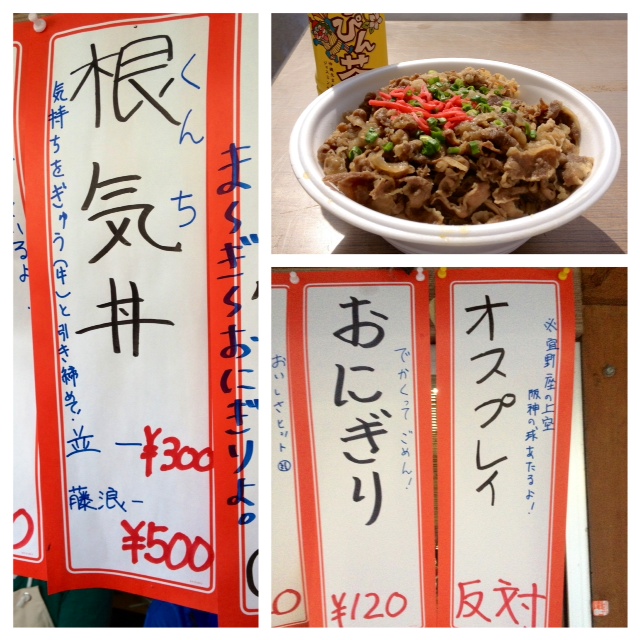 根気丼
くんち
気持ちをぎゅう(牛)と引き締めて!
並 ー¥300
藤浪ー
¥500
ま〜ぎ〜らおにぎりよ。
いるよ
ぴん
オスプレイ
※宜野座の上空
阪神の球あたるよ!
反対
おにぎり
でかくって ごめん!
¥120
おいしさヒット
0
0